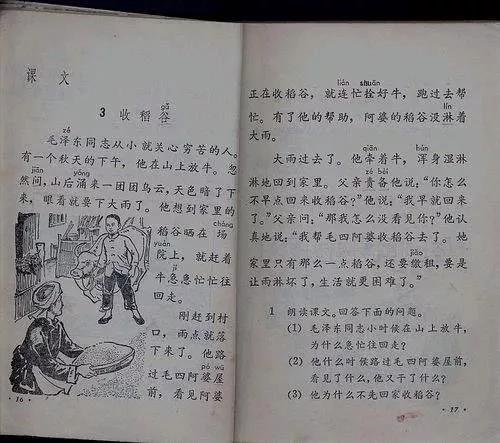 课文
gǔ
3 收稻谷
zé
毛泽东同志从小就关心穷苦的人。
有一个秋天的下午，他在山上放牛。忽
jiān yǒng
然间，山后涌来一团团乌云，天色暗了下
来，眼看就要下大雨了。他想到家里的
稻谷晒在场
yuàn
院上，就赶着
jí
牛急急忙忙往
回走。
刚赶到村
口，雨点就落
下来了。他路
pó wū
过毛四阿婆屋
前，看见阿婆
·16·
lián shuān
正在收稻谷，就连忙拴好牛，跑过去帮
lín
忙。有了他的帮助，阿婆的稻谷没淋着
大雨。
qiān hún
大雨过去了。他牵着牛，浑身湿淋
zé bèi
淋地回到家里。父亲责备他说：“你怎么
不早点回来收稻谷？”他说：“我早就回来
了。”父亲问：“那我怎么没看见你？”他认
真地说：“我帮毛四阿婆收稻谷去了。她
jiǎo
家里只有那么一点稻谷，还要缴租，要是
让雨淋坏了，生活就更困难了。”
1 朗读课文。回答下面的问题。
(1) 毛泽东同志小时候在山上放牛，
为什么急忙往回走？
(2) 他什么时候路过毛四阿婆屋前，
看见了什么，他又干了什么？
(3) 他为什么不先回家收稻谷？
·17·